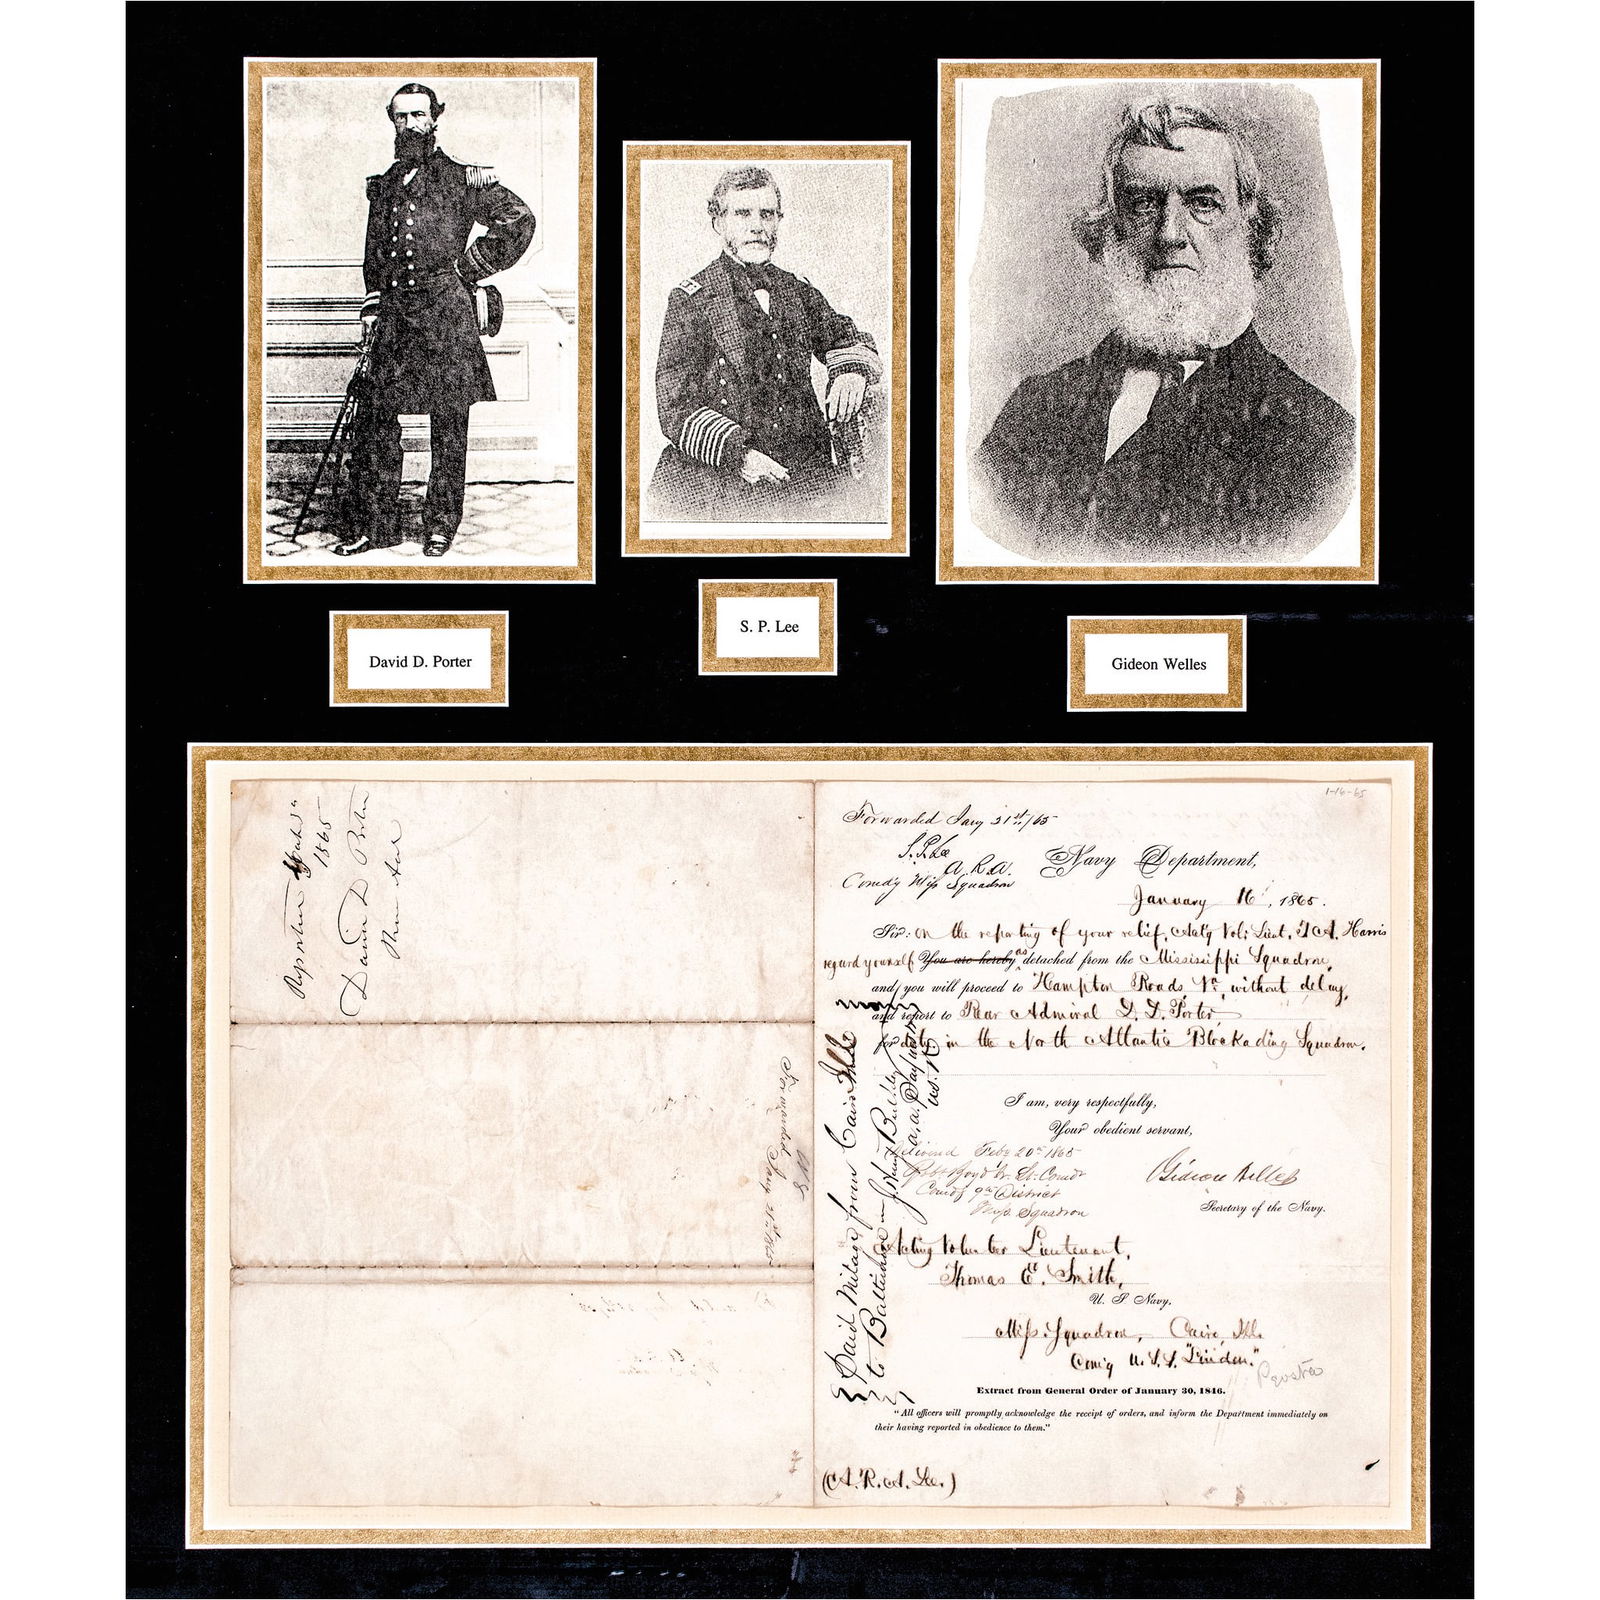 David D. Porter
S. P. Lee
Gideon Welles
1-16-65
Forwarded Jany 21st/65
S. P. Lee
A. R. A.
Comd'g Miss Squadron
Navy Department,
January 16, 1865.
Sir: On the reporting of your relief, Act'g Vol; Lieut. T A. Harris
regard yourself You are hereby as detached from the Mississippi Squadron,
and you will proceed to Hampton Roads Va, without delay,
and report to Rear Admiral D. D. Porter
for duty in the North Atlantic Blockading Squadron.
I am, very respectfully,
Your obedient servant,
Gideon Welles
Secretary of the Navy.
Delivered Feby 20th 1865
Robt Boyd Jr. Lt. Comdr
Comdg 9th District
Miss. Squadron
Acting Volunteer Lieutenant,
Thomas E. Smith,
U. S. Navy.
Miss. Squadron, Cairo, Ills.
Com'g U.S.S. "Linden."
Extract from General Order of January 30, 1846.
"All officers will promptly acknowledge the receipt of orders, and inform the Department immediately on
their having reported in obedience to them."
(A. R. A. Lee.)
Paid Milage from Cairo Ills
to Baltimore
Paymaster
U.S.N.
1865
David D Porter
Rear Ad
Forwarded Jany 21st 1865